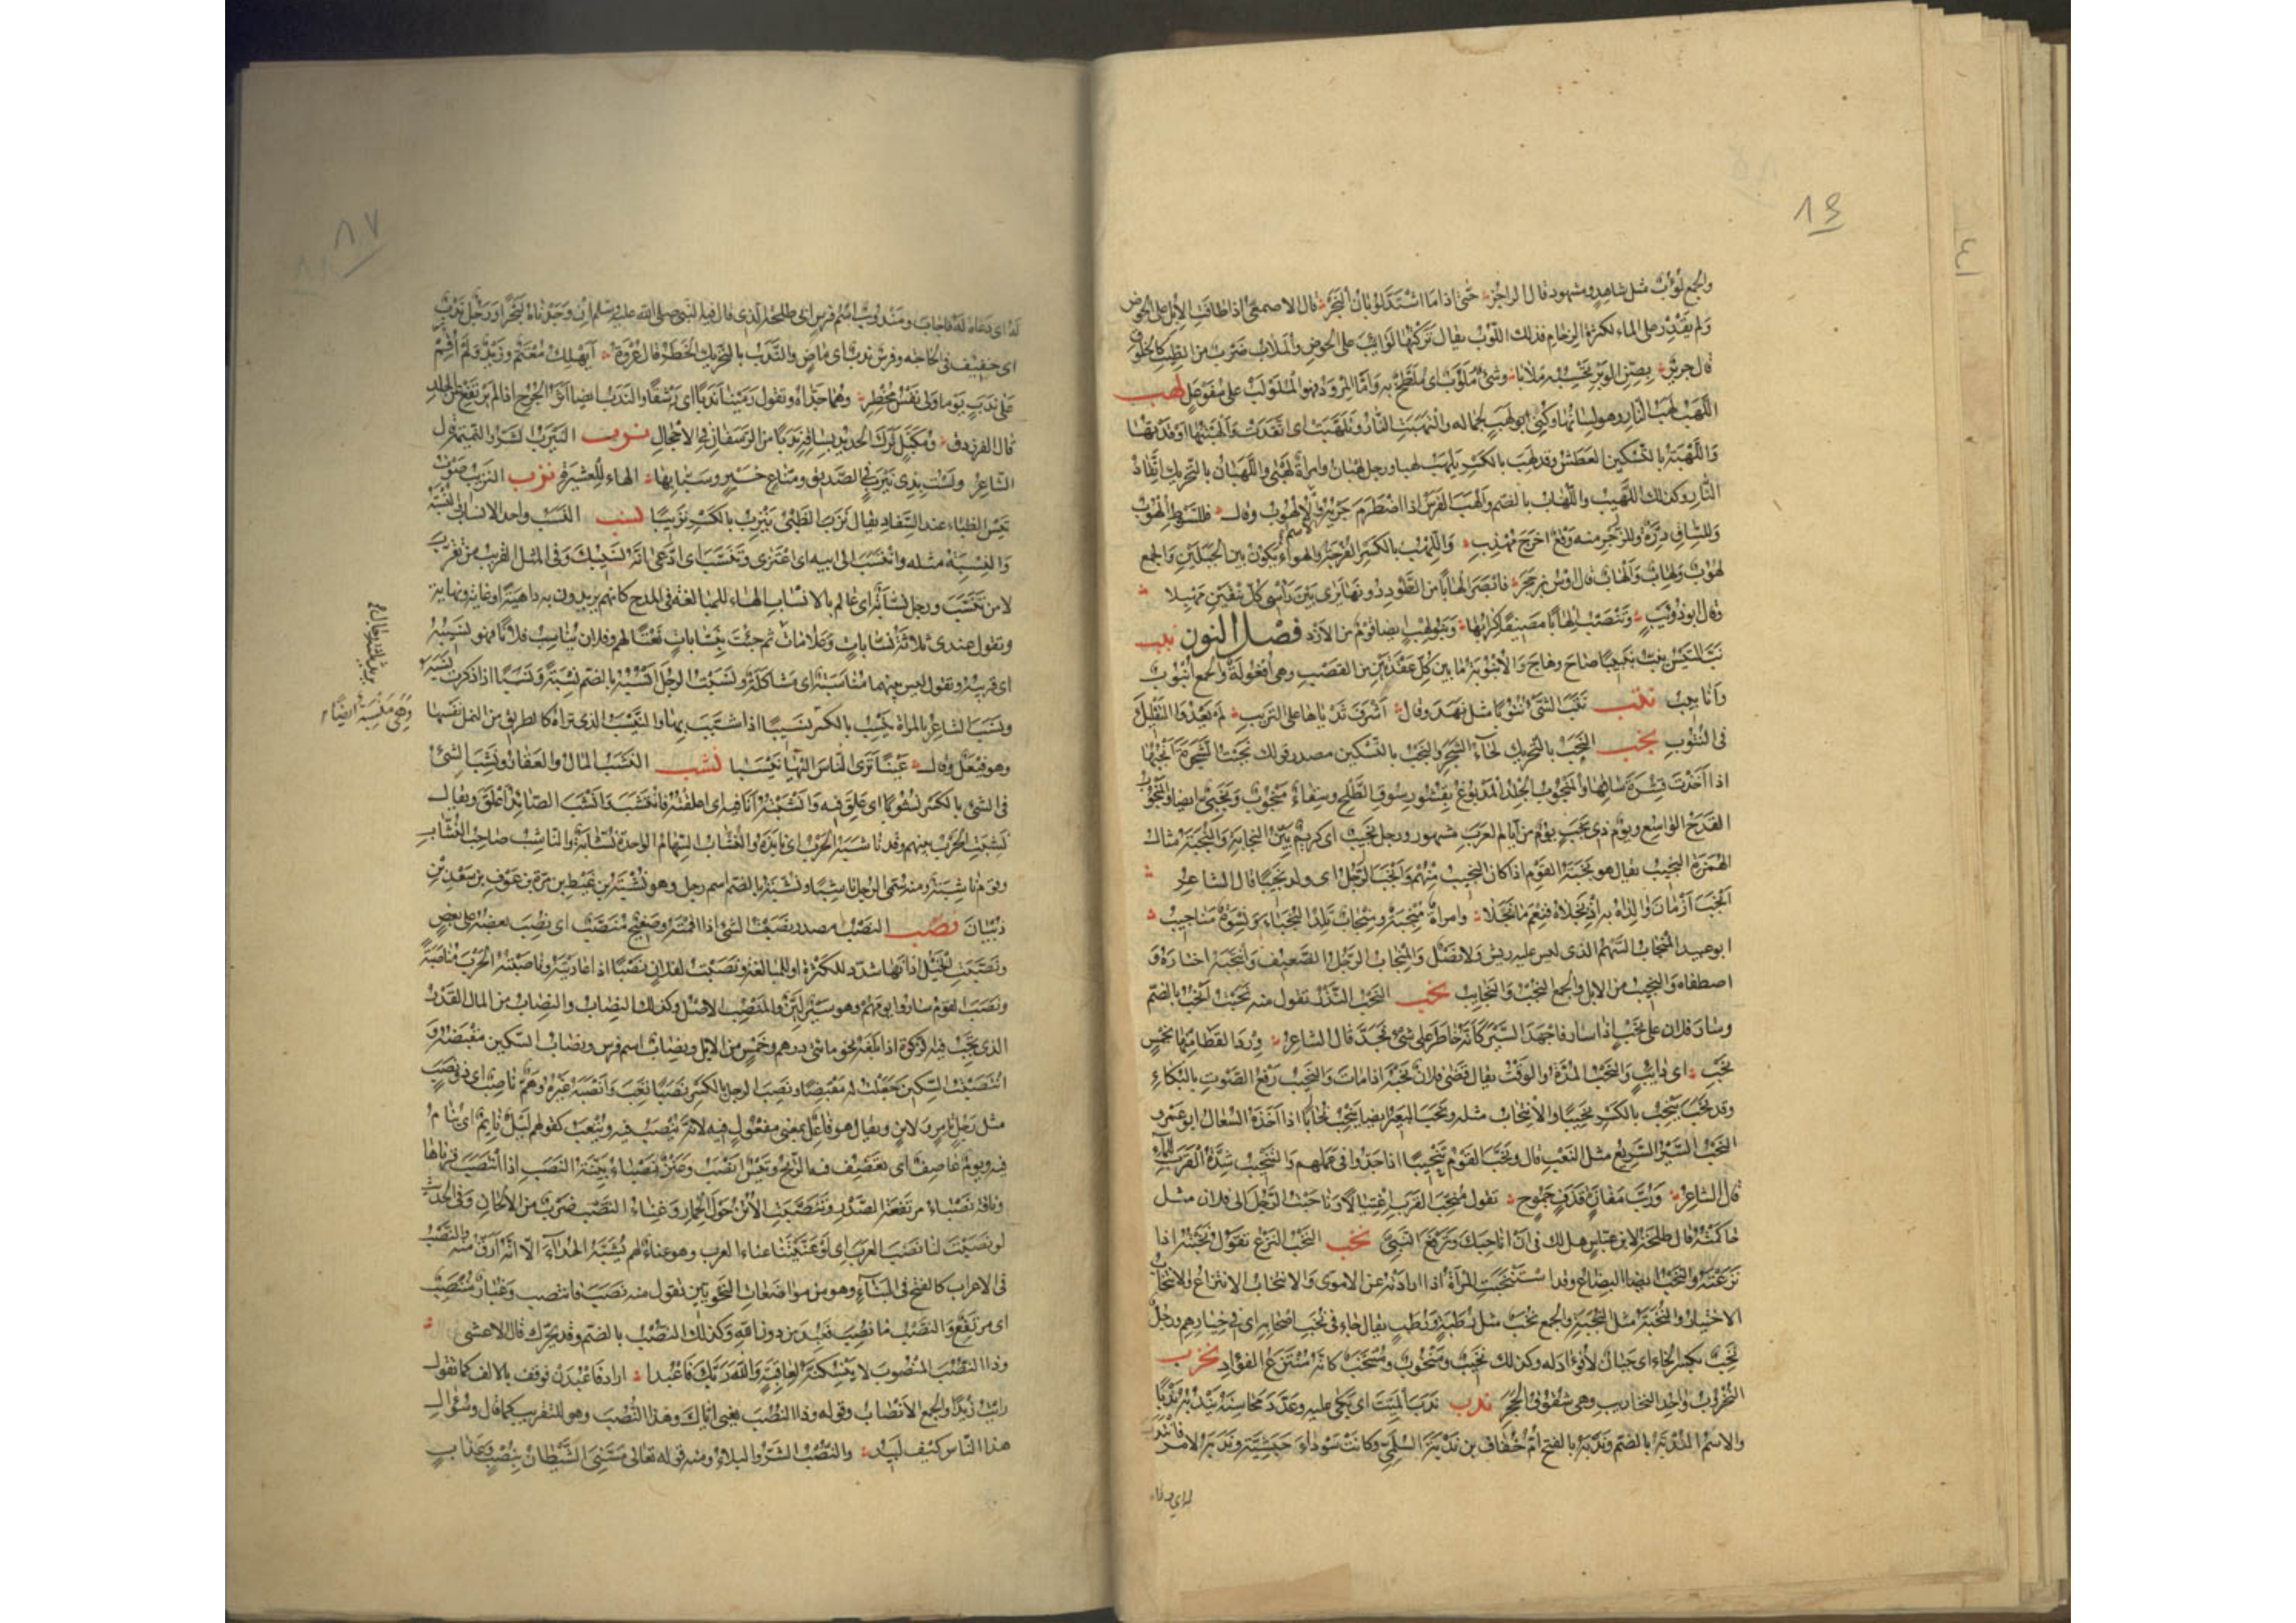 والجمع لُؤوب مثل شاهد وشهود قال الراجز حتى اذا ما اشتد لوبان النجر قال الاصمعى اذا طافت الابل على الحوض
ولم تقدر على الماء لكثرة الزحام فذلك اللوب يقال تركتها لوائب على الحوض والملاب ضرب من الطيب كالخلوق
قال جرير بصن الوبر تحسبه ملابا وشئ ملوب اى ملطخ به واما المرود فهو الملولب على مفوعل لهب
اللهب لهب النار وهو لسانها وكنى ابو لهب لجماله والتهبت النار وتلهبت اى اتقدت والهبتها اوقدتها
واللهبة بالتسكين العطش وقد لهب بالكسر يلهب لهبا ورجل لهبان وامرأة لهبى واللهبان بالتحريك اتقاد
النار وكذلك اللهيب واللهاب بالضم والهب الفرس اذا اضطرم جريه والاسم الالهوب وقال فللسوط الهوب
وللساق درة وللزجر منه وقع اخرج مهذب واللهب بالكسر الفرجة والهواء يكون بين الجبلين والجمع
لهوب ولهاب والهاب قال اوس بن حجر فابصر الهابا من الطود دونها يرى بين رأسى كل نيقين مهبلا
وقال ابو ذؤيب وتنصب الهابا مصيفا كرابها وبنو لهب ايضا قوم من الازد فصل النون نبب
نب التيس ينب نبيبا صاح وهاج والانبوبة ما بين كل عقدتين من القصب وهى افعولة والجمع انبوب
وانابيب نتب نتب الشئ نتوبا مثل نهد وقال اشرف ثدياها على التريب لم يعدوا التفليك
فى النتوب نجب النجب بالتحريك لحاء الشجر والنجب بالتسكين مصدر قولك نجبت الشجرة انجبها
اذا اخذت قشرة ساقها والمنجوب الجلد المدبوغ بقشور سوق الطلح وسقاء منجوب ونجبى ايضا والمنجوب
القدح الواسع ويوم ذى نجب يوم من ايام العرب مشهور ورجل نجيب اى كريم بين النجابة والنجبة مثال
الهمزة النجيب يقال هو نجبة القوم اذا كان النجيب منهم وانجب الرجل اى ولد نجيبا قال الشاعر
انجب ازمان والداه به اذ نجلاه فنعم ما نجلا وامرأة منجبة ومنجاب تلد النجباء ونسوة مناجيب
ابو عبيد المنجاب السهم الذى ليس عليه ريش ولا نصل والمنجاب الرجل الضعيف وانتجبه اختاره و
اصطفاه والنجيب من الابل والجمع النجب والنجائب نحب النحب النذر تقول منه نحبت انحب بالضم
وسار فلان على نحب اذا سار فاجهد السير كأنه خاطر على شئ فجد قال الشاعر ورد القطا منها بخمس
نحب اى دائب والنحب المدة والوقت يقال قضى فلان نحبه اذا مات والنحيب رفع الصوت بالبكاء
وقد نحب ينحب بالكسر نحيبا والانتحاب مثله ونحب البعير ايضا ينحب نحابا اذا اخذه السعال ابو عمرو
النحب السير السريع مثل النعب قال ونحب القوم تنحيبا اذا جدوا فى عملهم والتنحيب شدة القرب للماء
قال الشاعر ورب مفازة قذف جموح تقول منحب القرب اغتيالا وناحبت الرجل الى فلان مثل
حاكمته قال طلحة لابن عباس هل لك فى ان اناحبك وترفع النبى نخب النخب النزع تقول نخبته اذا
نزعته والنخب ايضا البضاع وقد استنخبت المرأة اذا ارادته عن الاموى والانتخاب الانتزاع والانتخاب
الاختيار والنخبة مثل النجبة والجمع نخب مثل رطبة ورطب يقال جاء فى نخب اصحابه اى فى خيارهم ورجل
نخب بكسر الخاء اى جبان لا فؤاد له وكذلك نخيب ومنخوب ومنتخب كانه منتزع الفؤاد نخرب
النخروب واحد النخاريب وهى شقوق الحجر ندب ندب الميت اى بكى عليه وعدد محاسنه يندبه ندبا
والاسم الندبة بالضم وندبة بالفتح ام خفاف بن ندبة السلمى وكانت سوداء حبشية وندبه لامر فانتدب
له اى دعاه
١٩
له اى دعاه له فاجاب ومندوب اسم فرس ابى طلحة الذى قال فيه النبى صلى الله عليه وسلم ان وجدناه لبحرا ورجل ندب
اى خفيف فى الحاجة وفرس ندب اى ماض والندب بالتحريك الخطر قال عروة ايهلك معتم وزيد ولم اقم
على ندب يوما ولى نفس مخطر وهما جداه وتقول رمينا ندبا اى رشقا والندب ايضا اثر الجرح اذا لم يرتفع عن الجلد
قال الفرزدق ومكبل ترك الحديد بساقه ندبا من الرسفان فى الاحجال نرب النيرب الشر والنميمة قال
الشاعر ولست بذى نيرب فى الصديق ومناع خير وسبابها الهاء للعشيرة نزب النزيب صوت
تيس الظباء عند السفاد يقال نزب الظبى ينزب بالكسر نزيبا نسب النسب واحد الانساب والنسبة
والنسبة مثله وانتسب الى ابيه اى اعتزى وتنسب اى ادعى انه نسيبك وفى المثل القريب من تقرب
لا من تنسب ورجل نسابة اى عالم بالانساب الهاء للمبالغة فى المدح كانهم يريدون به داهية او غاية ونهاية
وتقول عندى ثلاثة نسابات وعلامات ثم جئت بنسابات نعتا لهم وفلان يناسب فلانا فهو نسيبه
اى قريبه وتقول ليس بينهما مناسبة اى مشاكلة ونسبت الرجل انسبه بالضم نسبة ونسبا اذا ذكرت نسبه
ونسب الشاعر بالمرأة ينسب بالكسر نسيبا اذا شبب بها والنيسب الذى تراه كالطريق من النمل نفسها
وهو فيعل وقال عينا ترى الناس اليها نيسبا نشب النشب المال والعقار ونشب الشئ
فى الشئ بالكسر نشوبا اى علق فيه وانشبته انا فيه اى اعلقته فانتشب وانشب الصائد اعلق ويقال
نشبت الحرب بينهم وقد ناشبه الحرب اى نابذه والنشاب السهام الواحدة نشابة والناشب صاحب النشاب
وقوم ناشبة ومنه سمى الرجل ناشبا ونشبة بالضم اسم رجل وهو نشبة بن غيظ بن مرة بن عوف بن سعد بن
ذبيان نصب النصب مصدر نصبت الشئ اذا اقمته وصفيح منصب اى نصب بعضه على بعض
ونصبت الخيل آذانها شدد للكثرة او للمبالغة ونصبت لفلان نصبا اذا عاديته وناصبته الحرب مناصبة
ونصب القوم ساروا يومهم وهو سير لين والمنصب الاصل وكذلك النصاب والنصاب من المال القدر
الذى تجب فيه الزكوة اذا بلغه نحو مائتى درهم وخمس من الابل ونصاب اسم فرس ونصاب السكين مقبضه و
انصبت السكين جعلت له مقبضا ونصب الرجل بالكسر نصبا تعب وانصبه غيره وهم ناصب اى ذو نصب
مثل رجل تامر ولابن ويقال هو فاعل بمعنى مفعول فيه لانه ينصب فيه ويتعب كقولهم ليل نائم اى ينام
فيه ويوم عاصف اى تعصف فيه الريح وتيس انصب وعنز نصباء بينة النصب اذا انتصب قرناها
وناقة نصباء مرتفعة الصدر وتنصبت الاتن حول الحمار وغناء النصب ضرب من الالحان وفى الحديث
لو نصبت لنا نصب العرب اى لو غنيتنا غناء العرب وهو غناء لهم يشبه الحداء الا انه ارق منه والنصب
فى الاعراب كالفتح فى البناء وهو من مواضعات النحويين تقول منه نصبت فانتصب وغبار منتصب
اى مرتفع والنصب ما نصب فعبد من دون الله وكذلك النصب بالضم وقد يحرك قال الاعشى
وذا النصب المنصوب لا تنسكنه لعاقبة والله ربك فاعبدا اراد فاعبدن فوقف بالالف كما تقول
رايت زيدا والجمع الانصاب وقوله وذا النصب يعنى اياك وهذا النصب وهو للتقريب كما قال وسؤال
هذا الناس كيف لبيد والنصب الشر والبلاء ومنه قوله تعالى مسنى الشيطان بنصب وعذاب
وهى منسبة ايضا
٨٧